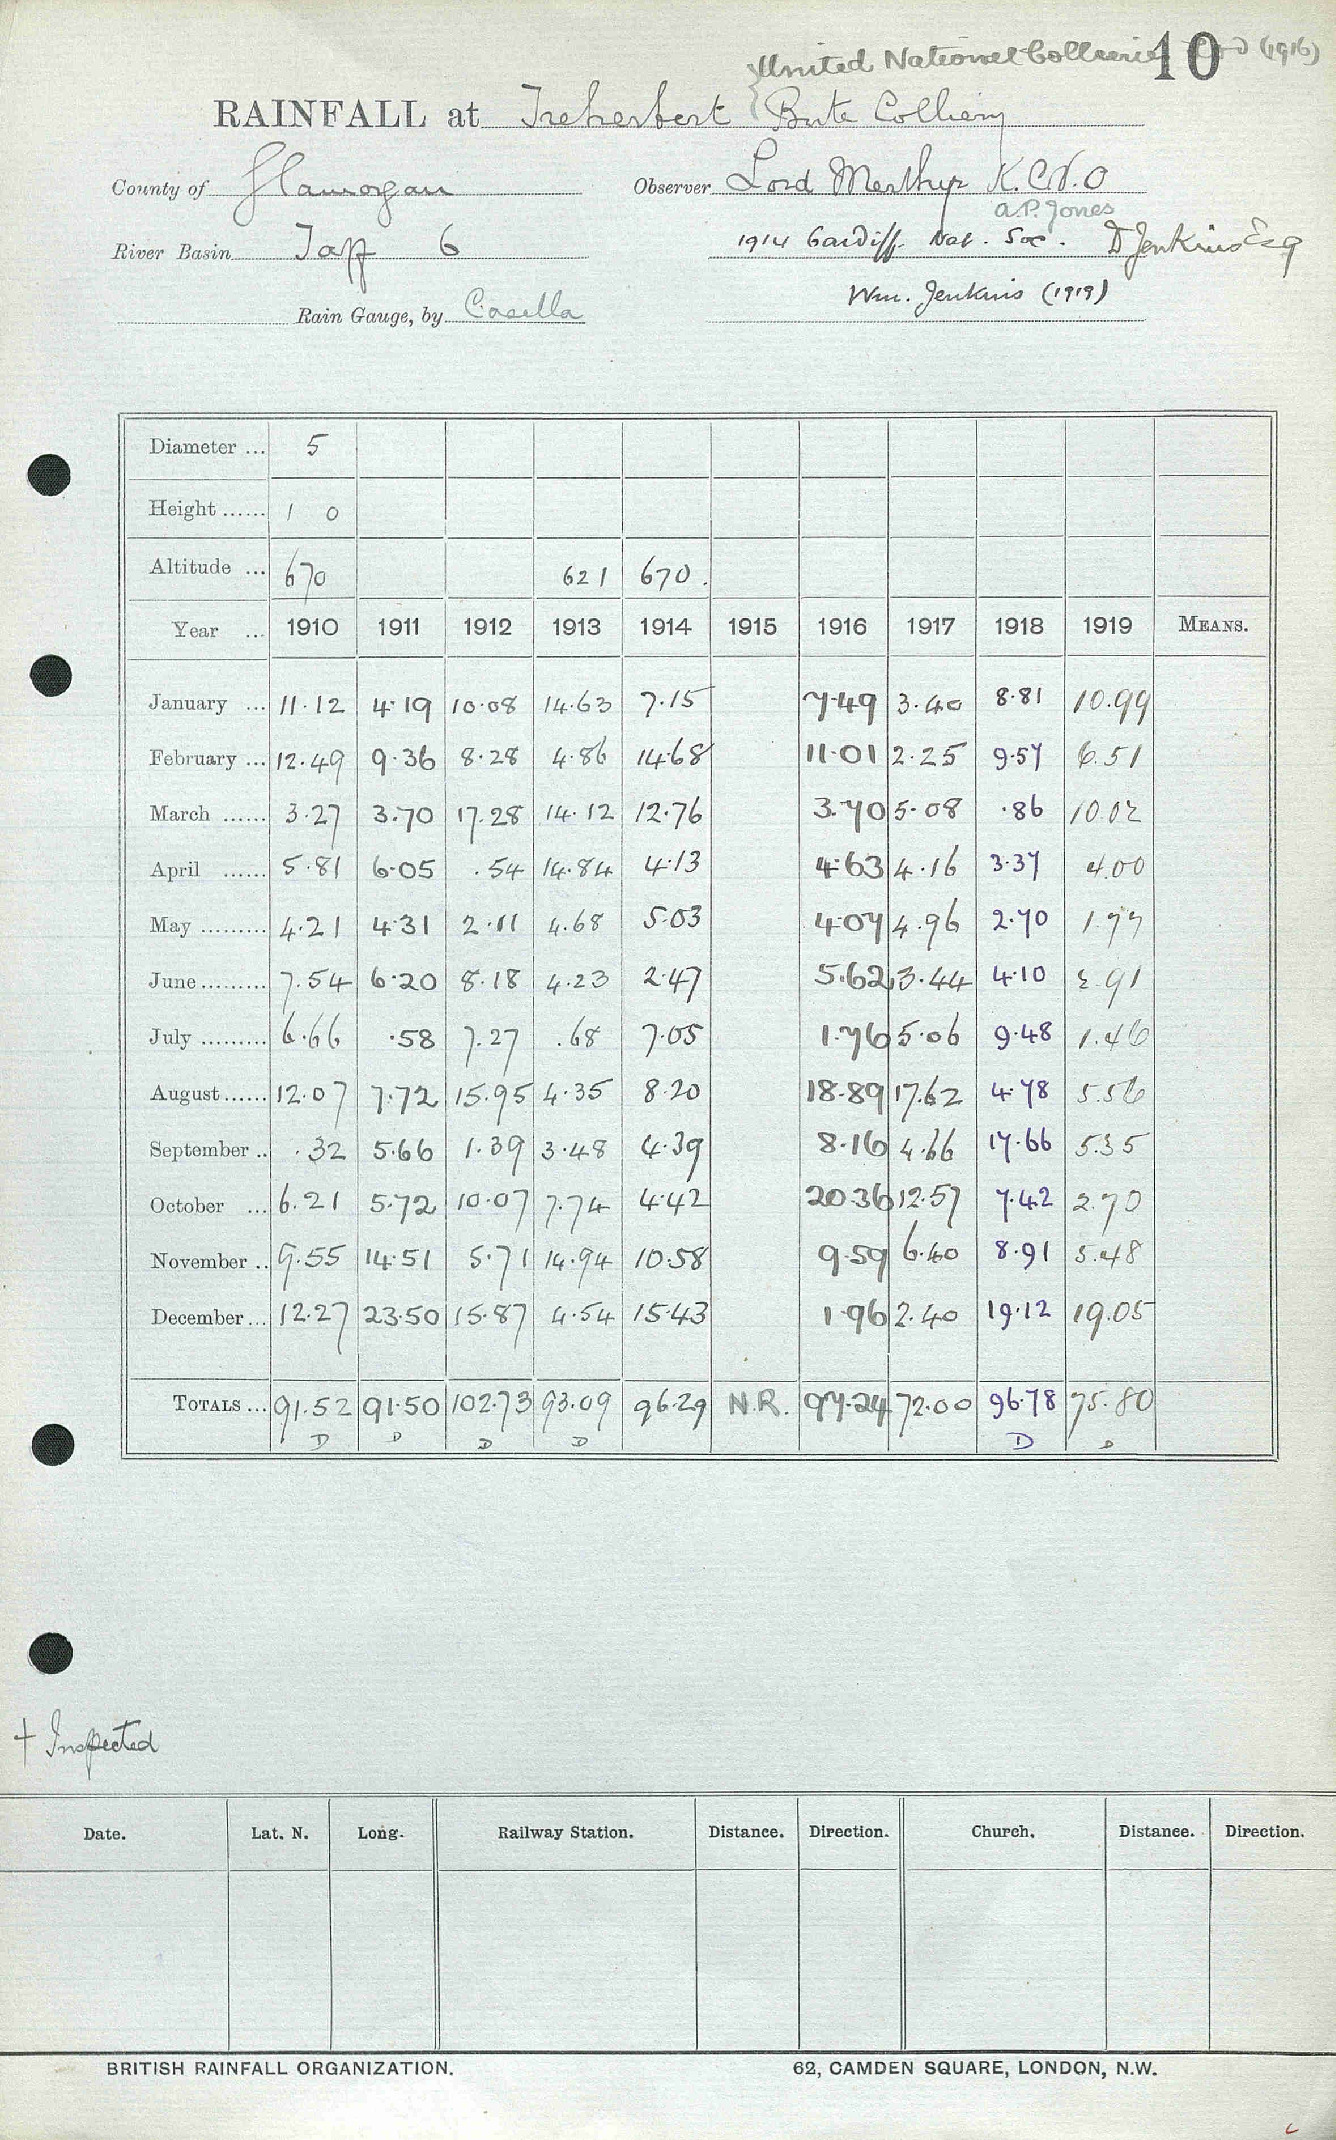 10
United National Collieries (1916)
RAINFALL at Treherbert Bute Colliery
County of Glamorgan Observer Lord Merthyr K.C.V.O
A.P. Jones
River Basin Taff 6 1914 Cardiff Nat. Soc. D Jenkins Esq
Wm. Jenkins (1919)
Rain Gauge, by Casella
Diameter ... 5
Height ...... 1 0
Altitude ... 670 621 670.
Year ... 1910 1911 1912 1913 1914 1915 1916 1917 1918 1919 MEANS.
January ... 11.12 4.19 10.08 14.63 7.15 7.49 3.40 8.81 10.99
February ... 12.49 9.36 8.28 4.86 14.68 11.01 2.25 9.57 6.51
March ...... 3.27 3.70 17.28 14.12 12.76 3.70 5.08 .86 10.02
April ...... 5.81 6.05 .54 14.84 4.13 4.63 4.16 3.37 4.00
May ......... 4.21 4.31 2.11 4.68 5.03 4.07 4.96 2.70 1.77
June ......... 7.54 6.20 8.18 4.23 2.47 5.62 3.44 4.10 2.91
July ......... 6.66 .58 7.27 .68 7.05 1.76 5.06 9.48 1.46
August ...... 12.07 7.72 15.95 4.35 8.20 18.89 17.62 4.78 5.56
September .. .32 5.66 1.39 3.48 4.39 8.16 4.66 17.66 5.35
October ... 6.21 5.72 10.07 7.74 4.42 20.36 12.57 7.42 2.70
November .. 9.55 14.51 5.71 14.94 10.58 9.59 6.40 8.91 5.48
December ... 12.27 23.50 15.87 4.54 15.43 1.96 2.40 19.12 19.05
TOTALS ... 91.52 91.50 102.73 93.09 96.29 N.R. 97.24 72.00 96.78 75.80
D D D D D D
+ Inspected
Date. Lat. N. Long. Railway Station. Distance. Direction. Church. Distance. Direction.
BRITISH RAINFALL ORGANIZATION. 62, CAMDEN SQUARE, LONDON, N.W.